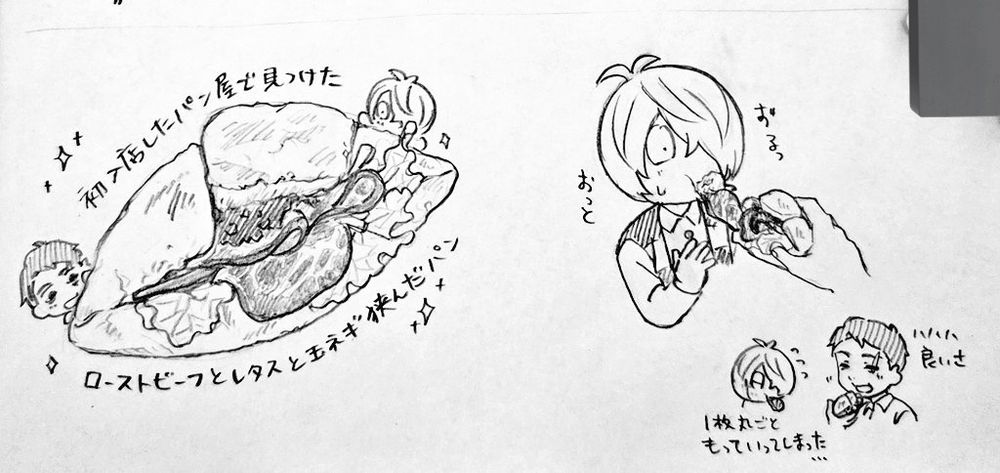 初入店したパン屋で見つけた
ローストビーフとレタスと玉ネギ挟んだパン
おっと
ずるっ
ハハハ
良いさ
1枚丸ごと
もっていってしまった…